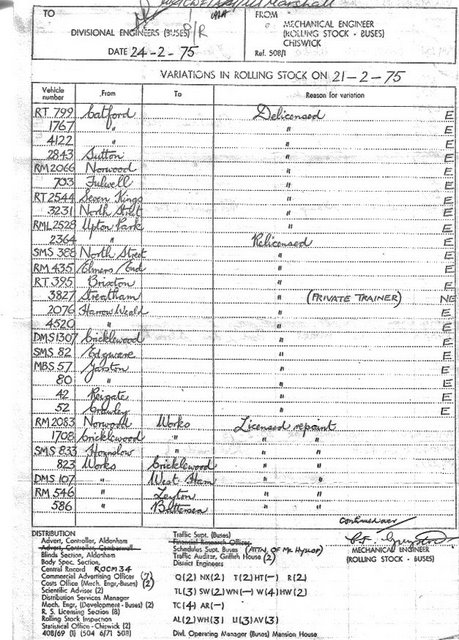 Marshall
TO FROM
DIVISIONAL ENGINEERS (BUSES) D/R
MECHANICAL ENGINEER
(ROLLING STOCK - BUSES)
CHISWICK
DATE 24-2-75 Ref. 508/1
VARIATIONS IN ROLLING STOCK ON 21-2-75
Vehicle number From To Reason for variation
RT 799 Catford Delicensed E
1767 " " E
4122 " " E
2843 Sutton " E
RM 2066 Norwood " E
703 Fulwell " E
RT 2544 Seven Kings " E
3231 North Street " E
RML 2528 Upton Park " E
2364 " Relicensed E
SMS 388 North Street " E
RM 435 Elmers End " E
RT 395 Brixton " E
3827 Streatham " (PRIVATE TRAINER) NE
2076 Harrow Weald " E
4520 " " E
DMS 1307 Cricklewood " E
SMS 82 Edgware " E
MBS 57 Garston " E
80 " " E
42 Reigate " E
52 Crawley " E
RM 2083 Norwood Works Licensed repaint
1708 Cricklewood " " "
SMS 833 Hounslow " " "
823 Works Cricklewood " "
DMS 107 " West Ham " "
RM 546 " Leyton " "
586 " Battersea " "
DISTRIBUTION
Advert. Controller, Aldenham
Advert. Controller, Camberwell
Blinds Section, Aldenham
Body Spec. Section,
Central Record ROOM 34
Commercial Advertising Officer (7)
Costs Office (Mech. Engr.-Buses) (2)
Scientific Adviser (2)
Distribution Services Manager
Mech. Engr. (Development - Buses) (2)
R. S. Licensing Section (8)
Rolling Stock Inspection
Statistical Office - Chiswick (2)
408/69 (1) (504 6/71 508)
Traffic Supt. (Buses)
Financial Research Officer
Schedules Supt. Buses (ATTN. OF MR HYSLOP)
Traffic Auditor, Griffith House (2)
District Engineers
Q(2) NX(2) T(2) HT(-) R(2)
TL(3) SW(2) WN(-) W(4) HW(2)
TC(4) AR(-)
AL(2) WH(3) U(3) AV(3)
Divl. Operating Manager (Buses) Mansion House
MECHANICAL ENGINEER
(ROLLING STOCK - BUSES)